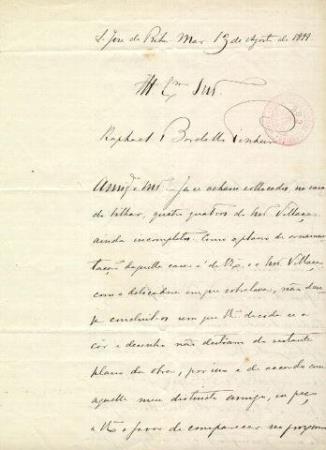 S. José de Riba Mar 13 de Agosto de 1899
Illmo Exmo Snr.
Raphael Bordallo Pinheiro
Amigo e Snr. Ja se acham collocados, na casa
de bilhar, quatro quadros do Snr. Villaça,
ainda incompletos. Como o plano de ornamen
tação daquella casa é de V. Ex.ª, e o Snr. Villaça,
com a delicadeza em que sobreleva, não deseja
concluil-os sem que V. Ex.ª decida se a
côr e desenho não destoam do restante
plano da obra, por isso e de accordo com
aquelle meu distincto amigo, eu peço
a V. Ex.ª o favor de comparecer na proxima